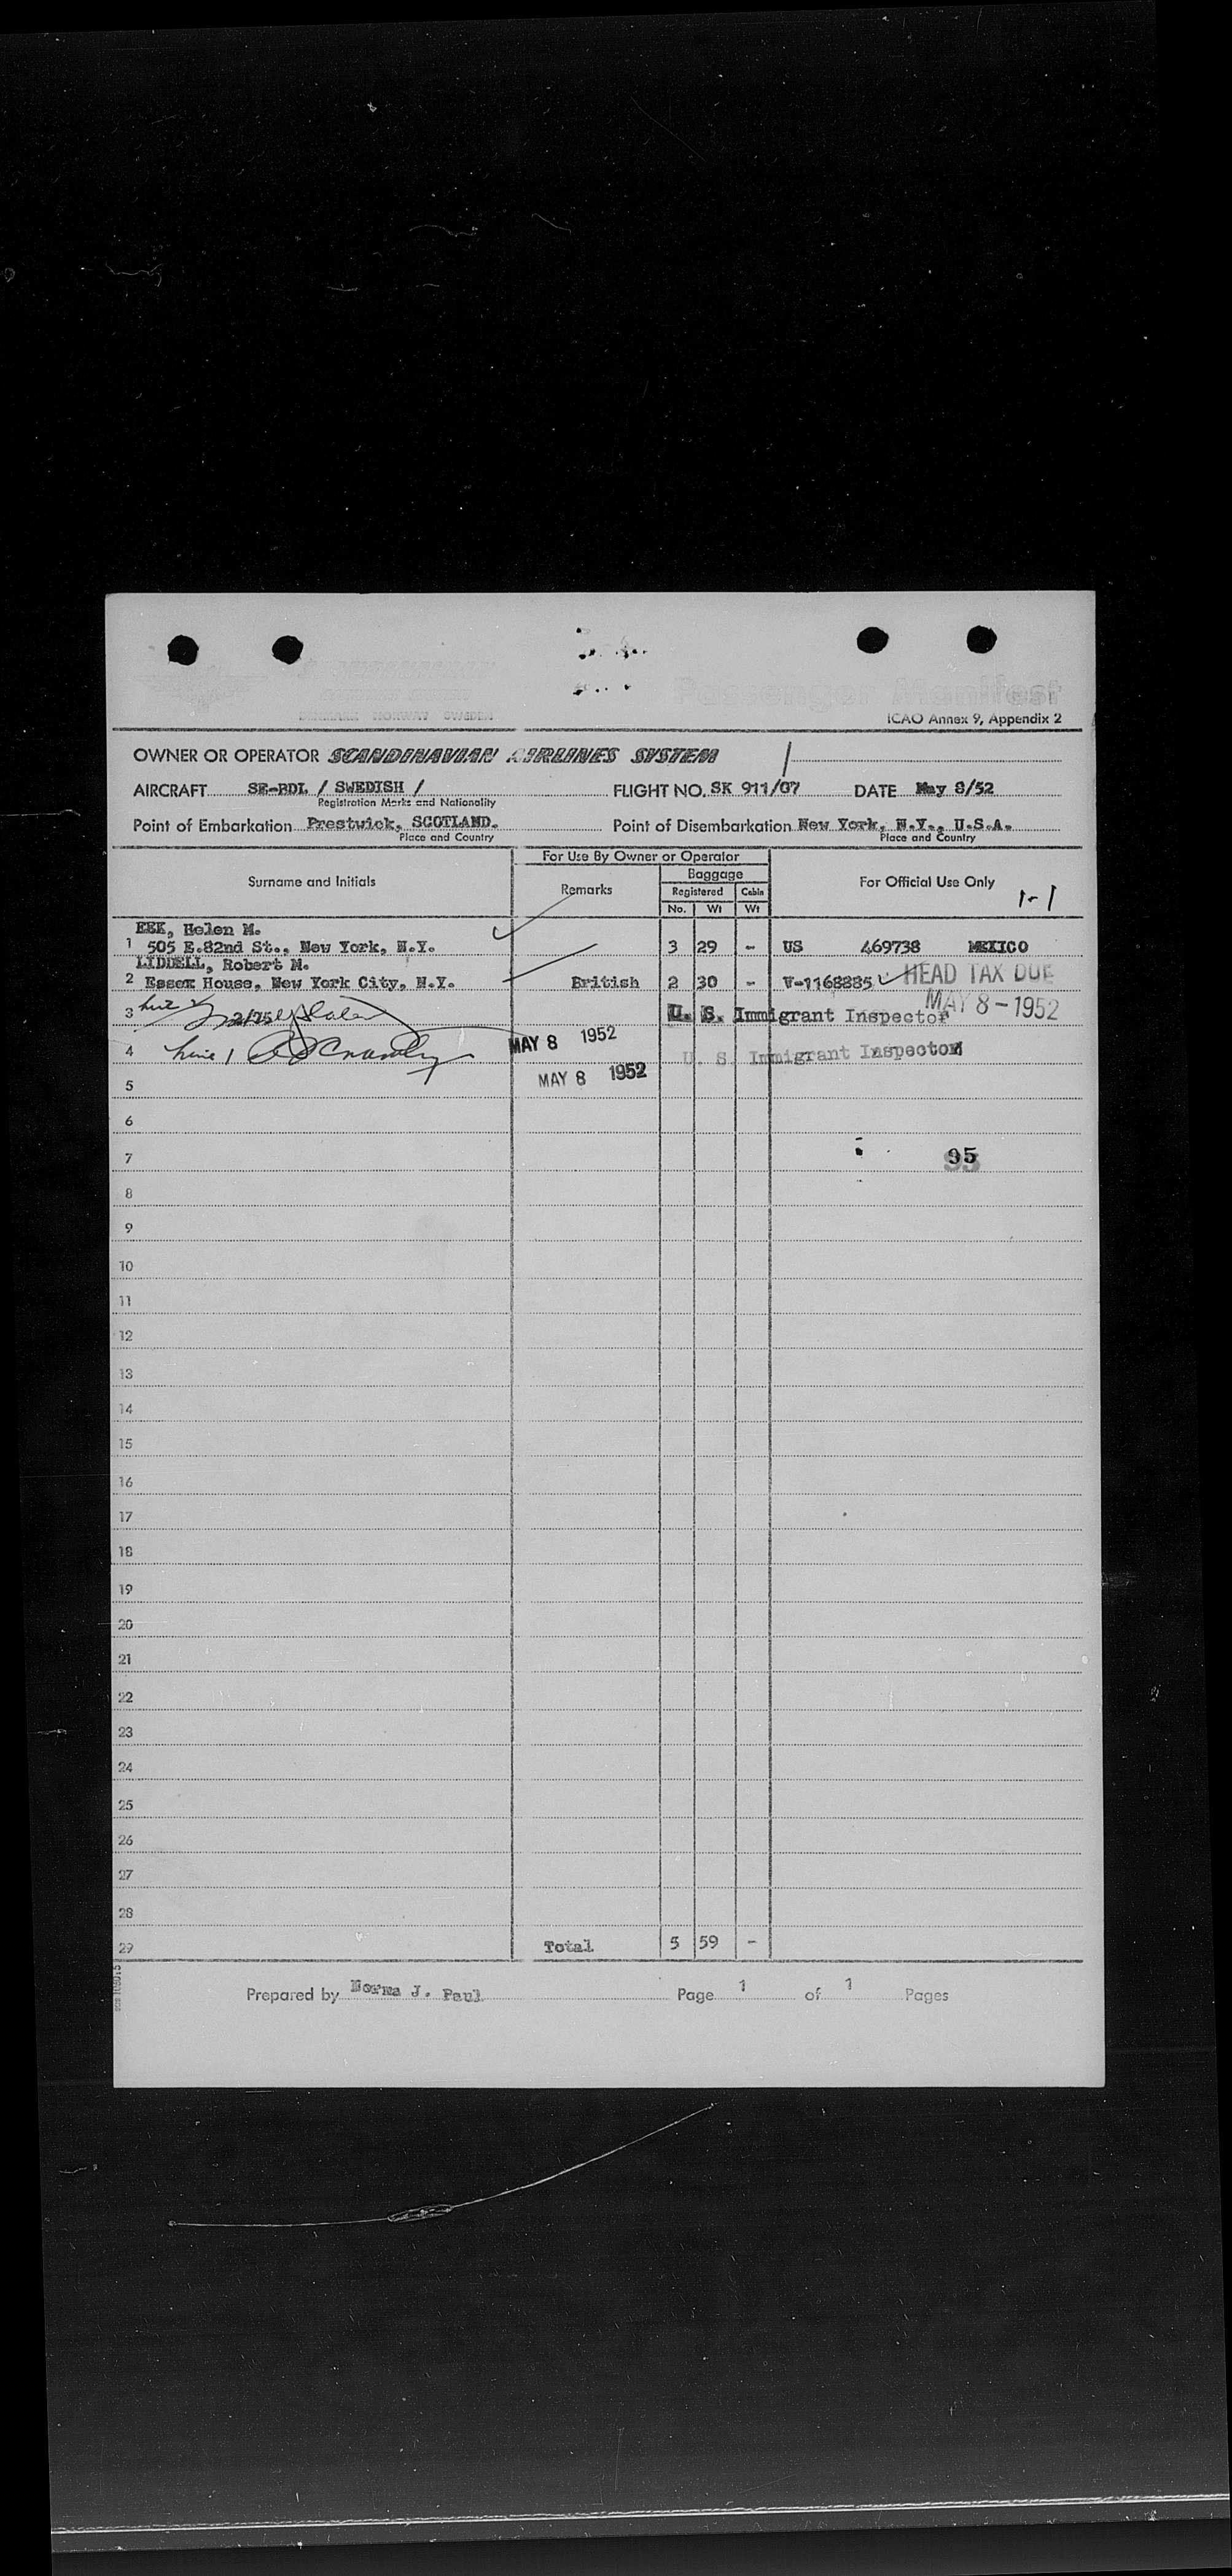 Passenger Manifest
DENMARK NORWAY SWEDEN
ICAO Annex 9, Appendix 2
OWNER OR OPERATOR SCANDINAVIAN AIRLINES SYSTEM
AIRCRAFT SE-BDL / SWEDISH / FLIGHT NO. SK 911/07 DATE May 8/52
Registration Marks and Nationality
Point of Embarkation Prestwick, SCOTLAND. Point of Disembarkation New York, N.Y., U.S.A.
Place and Country Place and Country
For Use By Owner or Operator
Surname and Initials Remarks Baggage For Official Use Only
Registered Cabin
1-1
No. Wt Wt
EEK, Helen M.
1 505 E.82nd St., New York, N.Y. 3 29 - US 469738 MEXICO
LIDDELL, Robert M.
2 Essex House, New York City, N.Y. British 2 30 - V-1168885 HEAD TAX DUE
MAY 8-1952
3 U. S. Immigrant Inspector
4 line 1 MAY 8 1952 U. S. Immigrant Inspector
5 MAY 8 1952
6
7 95
8
9
10
11
12
13
14
15
16
17
18
19
20
21
22
23
24
25
26
27
28
29 Total 5 59 -
Prepared by Norma J. Paul Page 1 of 1 Pages